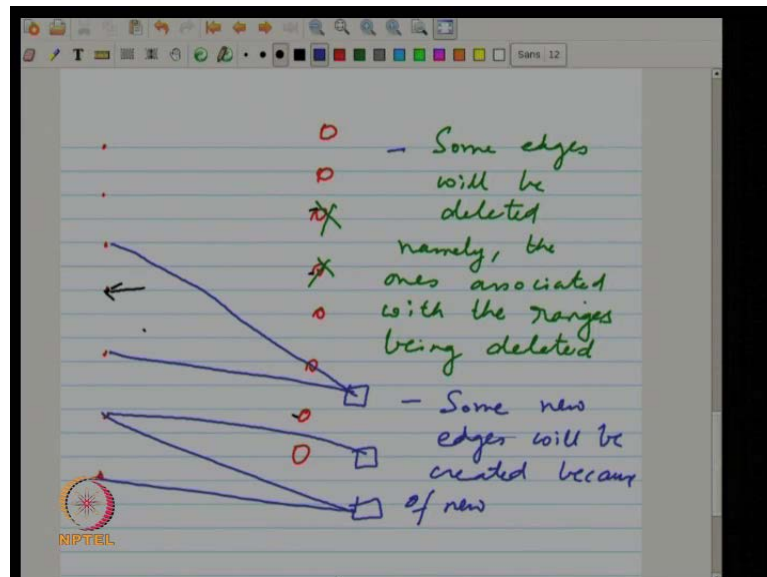 Sans 12
- Some edges
will be
deleted
namely, the
ones associated
with the ranges
being deleted
- Some new
edges will be
created because
of new
NPTEL